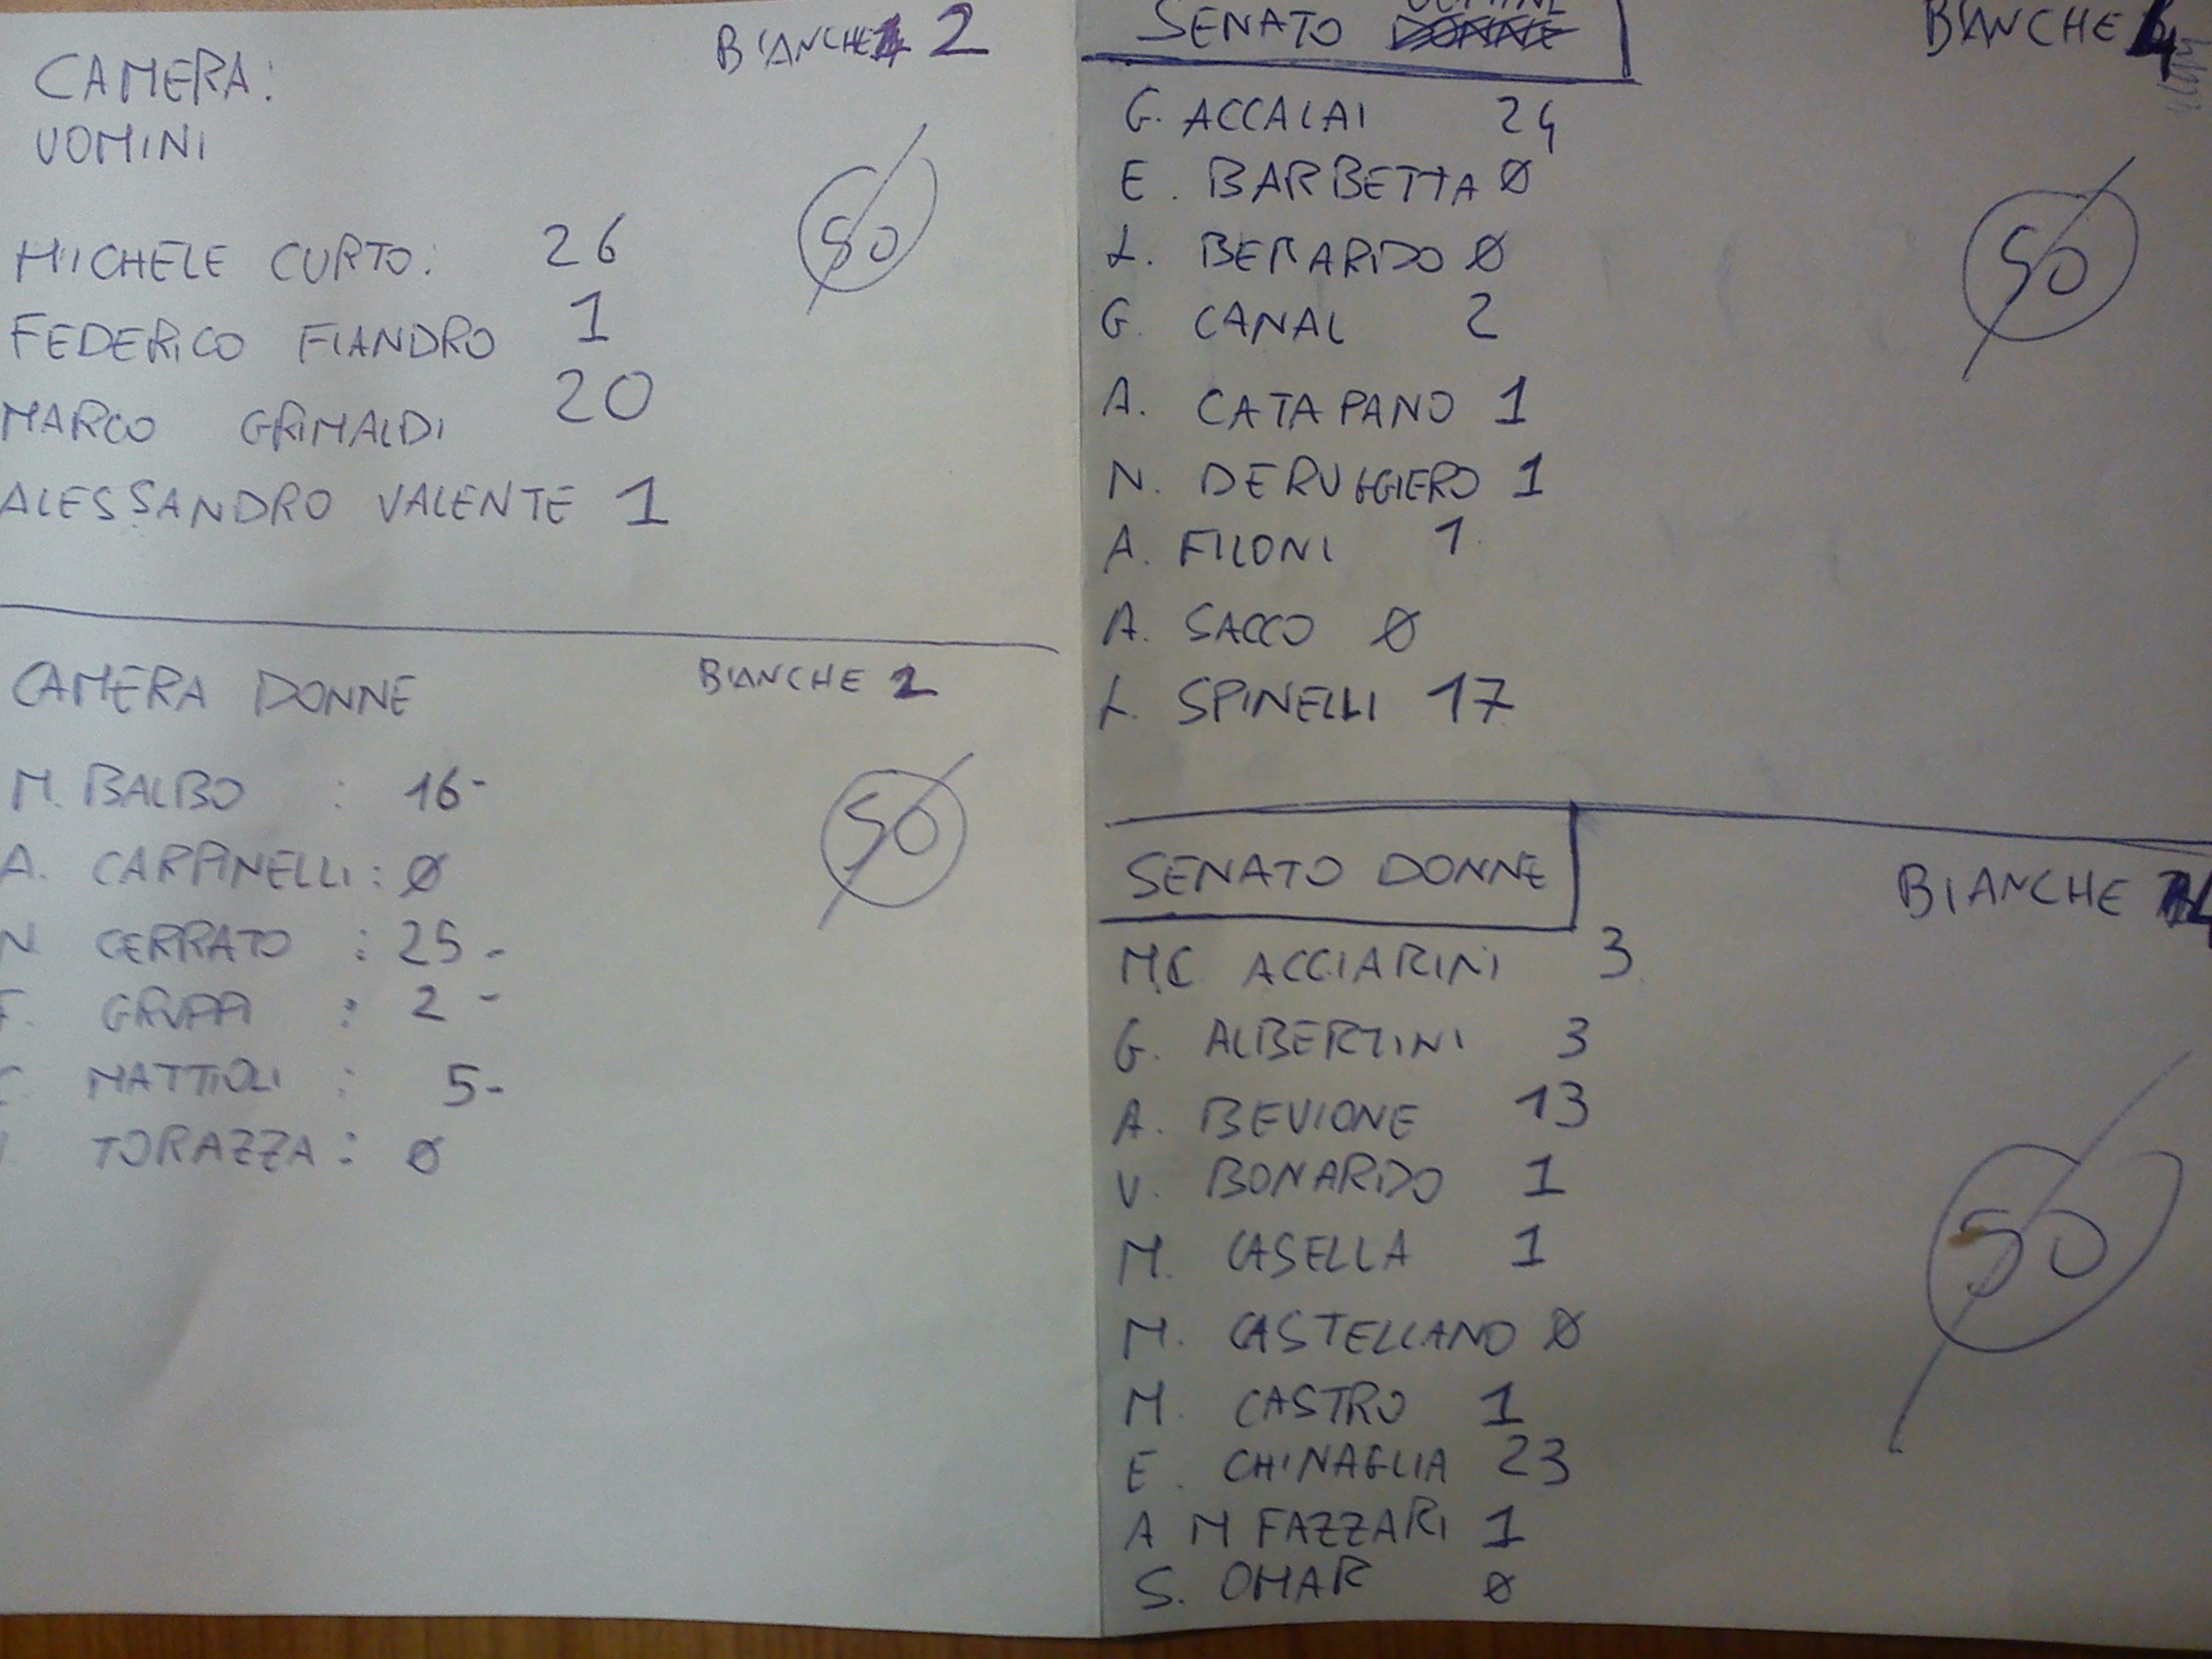 CAMERA:
UOMINI
BIANCHE 2
50
MICHELE CURTO: 26
FEDERICO FIANDRO 1
MARCO GRIMALDI 20
ALESSANDRO VALENTE 1
CAMERA DONNE
BIANCHE 2
50
M. BALBO : 16-
A. CARPINELLI: Ø
N CERRATO : 25-
F. GRUPPI : 2-
MATTIOLI : 5-
TORAZZA: Ø
SENATO UOMINI DONNE
BIANCHE 4
50
G. ACCALAI 24
E. BARBETTA Ø
L. BERARDO Ø
G. CANAL 2
A. CATAPANO 1
N. DERUGGIERO 1
A. FILONI 1
A. SACCO Ø
L. SPINELLI 17
SENATO DONNE
BIANCHE 4
50
M.C ACCIARINI 3
G. ALBERTINI 3
A. BEVIONE 13
V. BONARDO 1
M. CASELLA 1
M. CASTELLANO Ø
M. CASTRO 1
E. CHINAGLIA 23
A M FAZZARI 1
S. OMAR Ø